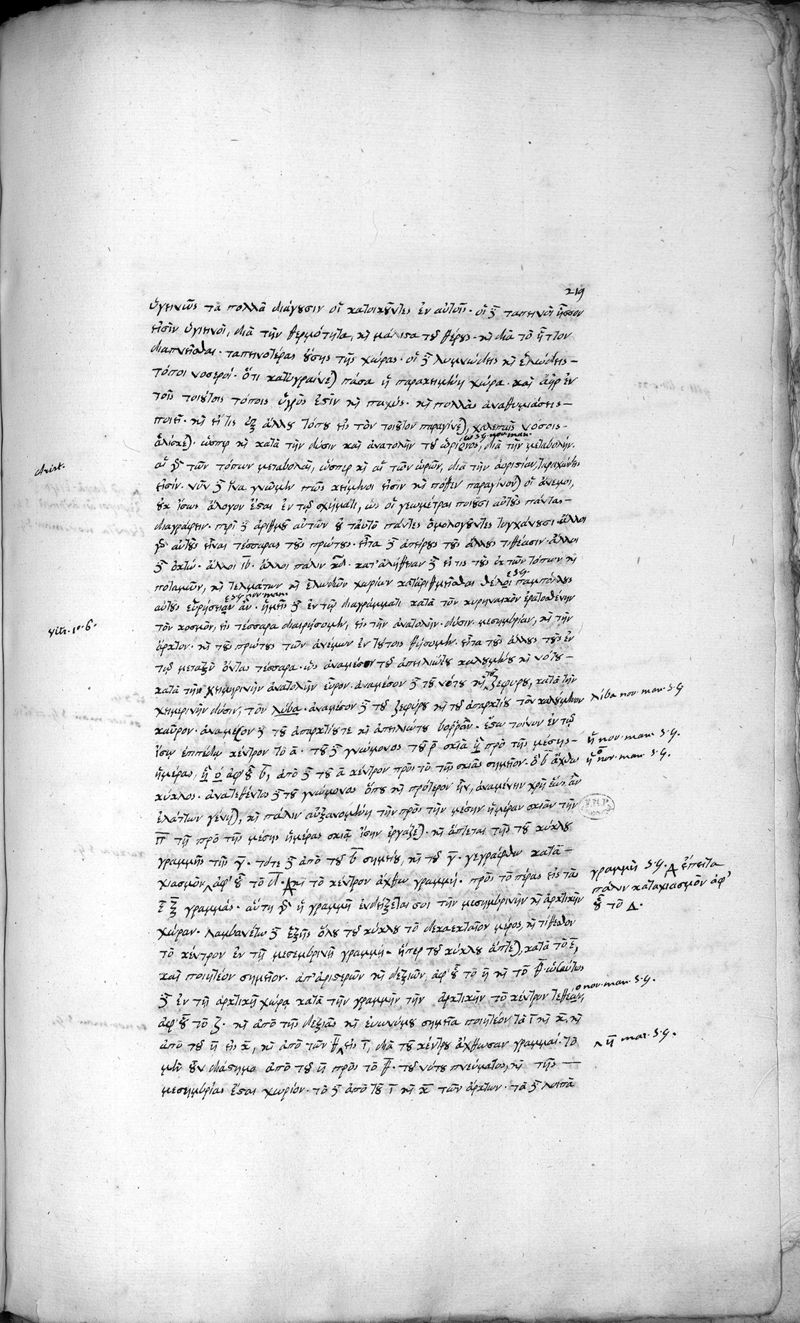 219
ὑγεινῶς τὰ πολλὰ διάγουσιν οἱ κατοικοῦντες ἐν αὐτοῖς · οἱ δὲ ταπεινοὶ ἧσσον
εἰσὶν ὑγιεινοὶ, διὰ τὴν θερμότητα, καὶ μάλιστα τοῦ θέρους · καὶ διὰ τὸ ἧττον
διαπνεῖσθαι · ταπεινοτέρας οὔσης τῆς χώρας · οἱ δὲ λιμνώδεις καὶ ἑλώδεις
τόποι νοσεροί · ὅτι καθυγραίνεται πᾶσα ἡ παρακειμένη χώρα · καὶ ἀὴρ ἐν
τοῖς τοιούτοις τόποις ὑγρός ἐστιν καὶ παχύς · καὶ πολλὰς ἀναθυμιάσεις
ποιεῖ · καὶ εἴ τις ἐξ ἄλλου τόπου εἰς τὸν τοιοῦτον παραγίνεται, χαλεπαῖς νόσοις
ω S.G. nov. man.
ἁλίσκεται · ὥσπερ καὶ κατὰ τὴν δύσιν καὶ ἀνατολὴν τοῦ ὠρίονος, διὰ τὴν μεταβολήν ·
αἱ γὰρ τῶν τόπων μεταβολαὶ, ὥσπερ καὶ αἱ τῶν ὡρῶν, διὰ τὴν ἀοριστίαν, ταραχώδεις
εἰσίν · νῦν δὲ ἵνα γνῶμεν πῶς κείμενοι εἰσὶν καὶ πόθεν παραγίνονται οἱ ἄνεμοι,
οὐκ ἴσως ἄλογον ἔσται ἐν τῷ σχήματι, ὡς οἱ γεωμέτραι ποιοῦσι αὐτοὺς πάντας
διαγράφειν · περὶ δὲ ἀριθμοῦ αὐτῶν οὐ ταὐτὸ πάντες ὁμολογοῦντες τυγχάνουσι ἄλλοι
γὰρ αὐτοὺς εἶναι τέσσαρας τοὺς πρώτους · εἶτα δὲ ἀπείρους τοὺς ἄλλους τιθέασιν · ἄλλοι
δὲ ὀκτώ · ἄλλοι ιβ · ἄλλοι πάλιν κδ · κατ' ἀλήθειαν δὲ εἴ τις τοὺς ἐκ τῶν τόπων καὶ
ποταμῶν, καὶ τελμάτων καὶ ἑλωδῶν χωρίων καταριθμεῖσθαι θέλοι παμπόλλους
αὐτοὺς εὑρήσειεν ἂν · ἡμεῖς δὲ ἐν τῷ διαγράμματι κατὰ τὸν κυρηναικὸν ἐρατοσθένην
τὸν κόσμον, εἰς τέσσαρα διαιρήσομεν, εἰς τὴν ἀνατολὴν · δύσιν · μεσημβρίαν, καὶ τὴν
ἄρκτον · καὶ τοὺς πρώτους τῶν ἀνέμων ἐν τούτοις θήσομεν · εἶτα τοὺς ἄλλους τοὺς ἐν
τῷ μεταξὺ ὄντας τέσσαρα · ὡς ἀναμέσον τοῦ ἀπηλιώτου καλουμένου καὶ νότου
κατὰ τὴν χειμερινὴν ἀνατολὴν εὖρον · ἀναμέσον δὲ τοῦ νότου καὶ τοῦ ζεφύρου, κατὰ τὴν
χειμερινὴν δύσιν, τὸν λίβα · ἀναμέσον δὲ τοῦ ζεφύρου καὶ τοῦ ἀπαρκτίου τὸν καλούμενον
λίβα nov. man. S.G.
καῦρον · ἀναμέσον δὲ τοῦ ἀπαρκτίου τε καὶ ἀπηλιώτου βορρᾶν · ἔστω τοίνυν ἐν τῷ
ἴσῳ ἐπιπέδῳ κέντρον τὸ α · τοῦ δὲ γνώμονος τοῦ ρ σκιὰ ἡ πρὸ τῆς μέσης
ᾗ nov. man. S.G.
ἡμέρας, ἡ ὁ ἀφ' οὗ β, ἀπὸ δὲ τοῦ α κέντρον πρὸς τὸ τῆς σκιᾶς σημεῖον · ὁ β ἄχθω
nov. man. S.G.
κύκλος · ἀνατεθέντος δὲ τοῦ γνώμονος ὅπου καὶ πρότερον ἦν, ἀναμένειν χρὴ ἕως ἂν
ἐλάττων γένηται, καὶ πάλιν αὐξανομένη τὴν πρὸς τὴν μέσην ἡμέραν σκιὰν τὴν
τῇ πρὸ τῆς μέσης ἡμέρας σκιᾷ ἴσην ἐργάσεται · καὶ ἅπτεται τῆς τοῦ κύκλου
γραμμῆς τῆς γ · τότε δὲ ἀπὸ τοῦ β σημείου, καὶ τοῦ γ · γεγράφθω κατὰ
χιασμὸν ἀφ' οὗ τὸ δ · καὶ τὸ κέντρον ἄχθω γραμμή · πρὸς τὸ πέρας εἰς τὰς
γραμμὴ S.G. ἔπειτα
πάλιν καταχιασμὸν ἀφ'
οὗ τὸ Δ.
ε ζ γραμμάς · αὕτη γὰρ ἡ γραμμὴ ἐνδείξεταί σοι τὴν μεσημβρινὴν καὶ ἀρκτικὴν
χώραν · Λαμβανέτω δὲ ἑξῆς ὅλου τοῦ κύκλου τὸ δεκαεκταῖον μέρος, καὶ τιθέσθω
τὸ κέντρον ἐν τῇ μεσεμβρινῇ γραμμῇ · ἥπερ τοῦ κύκλου ἅπτεται, κατὰ τὸ ε,
καὶ ποιητέον σημεῖον · ἀπ' ἀριστερῶν καὶ δεξιῶν, ἀφ' οὗ τὸ η καὶ τὸ θ ὡσαύτως
δὲ ἐν τῇ ἀρκτικῇ χώρᾳ κατὰ τὴν γραμμὴν τὴν ἀρκτικὴν τὸ κέντρον τεθέσθω,
ο nov. man. S.G.
ἀφ' οὗ τὸ ζ · καὶ ἀπὸ τῆς δεξιᾶς καὶ εὐωνύμου σημεῖα ποιητέον τὰ ι καὶ κ, καὶ
ἀπὸ τοῦ η εἰς κ, καὶ ἀπὸ τῶν θ εἰς ι, διὰ τοῦ κέντρου ἄχθωσαν γραμμαί · τὸ
η mar. S.G.
μὲν οὖν διάστημα ἀπὸ τοῦ η πρὸς τὸ θ · τοῦ νότου πνεύματος, καὶ τῆς
μεσημβρίας ἔσται χωρίον · τὸ δὲ ἀπὸ τοῦ ι καὶ κ τῶν ἄρκτων · τὰ δὲ λοιπὰ